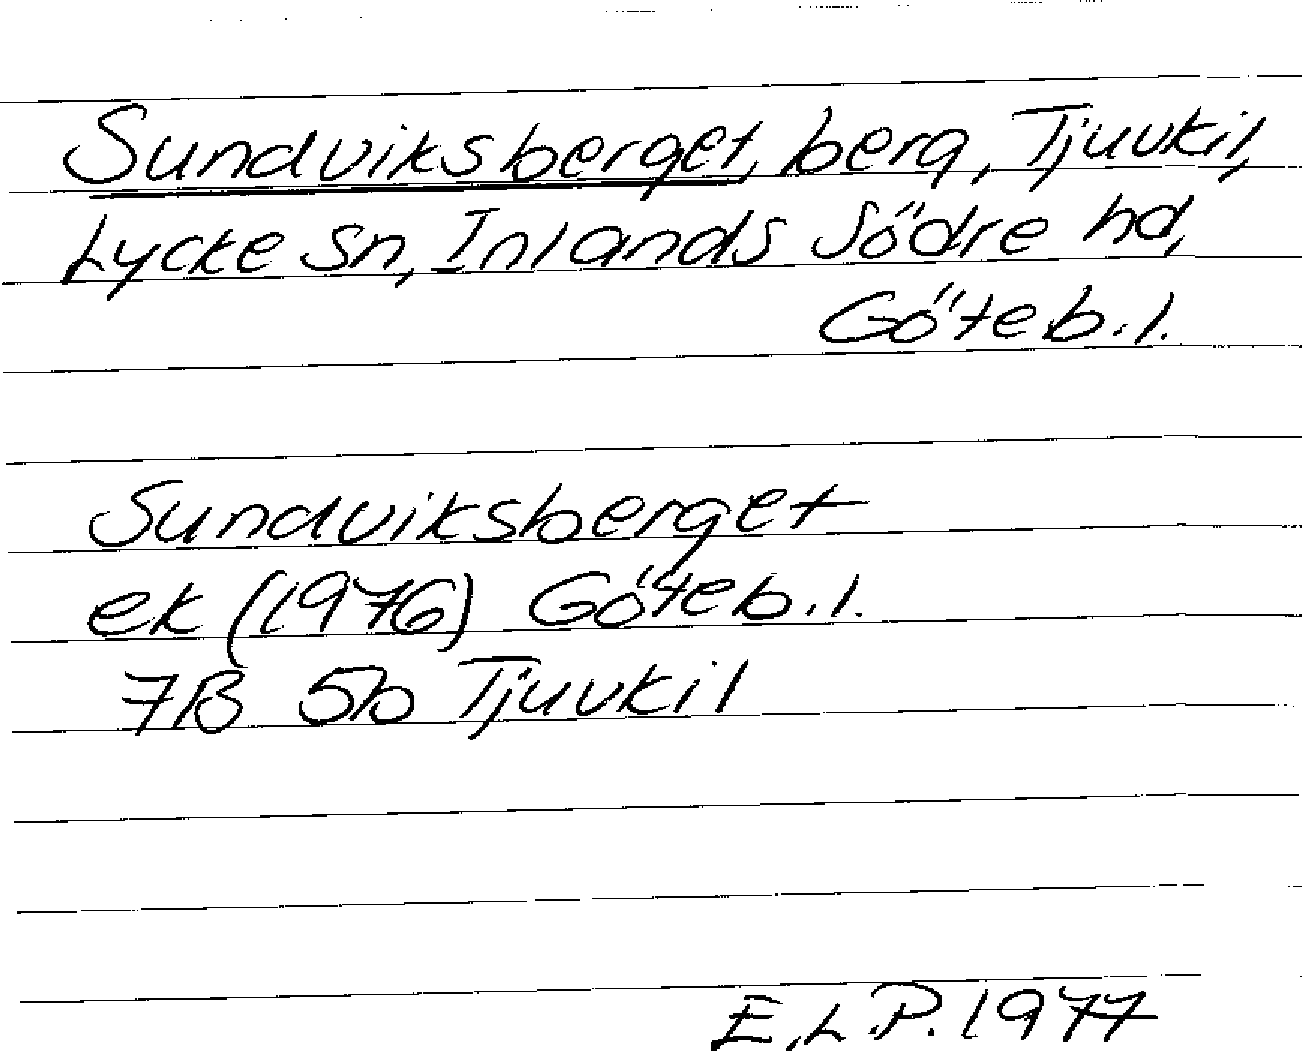 Sundviksberget, berg, Tjuvkil,
Lycke sn, Inlands Södre hd,
Göteb.l.
Sundviksberget
ek (1976) Göteb.l.
7B 5b Tjuvkil
E.L.P. 1977